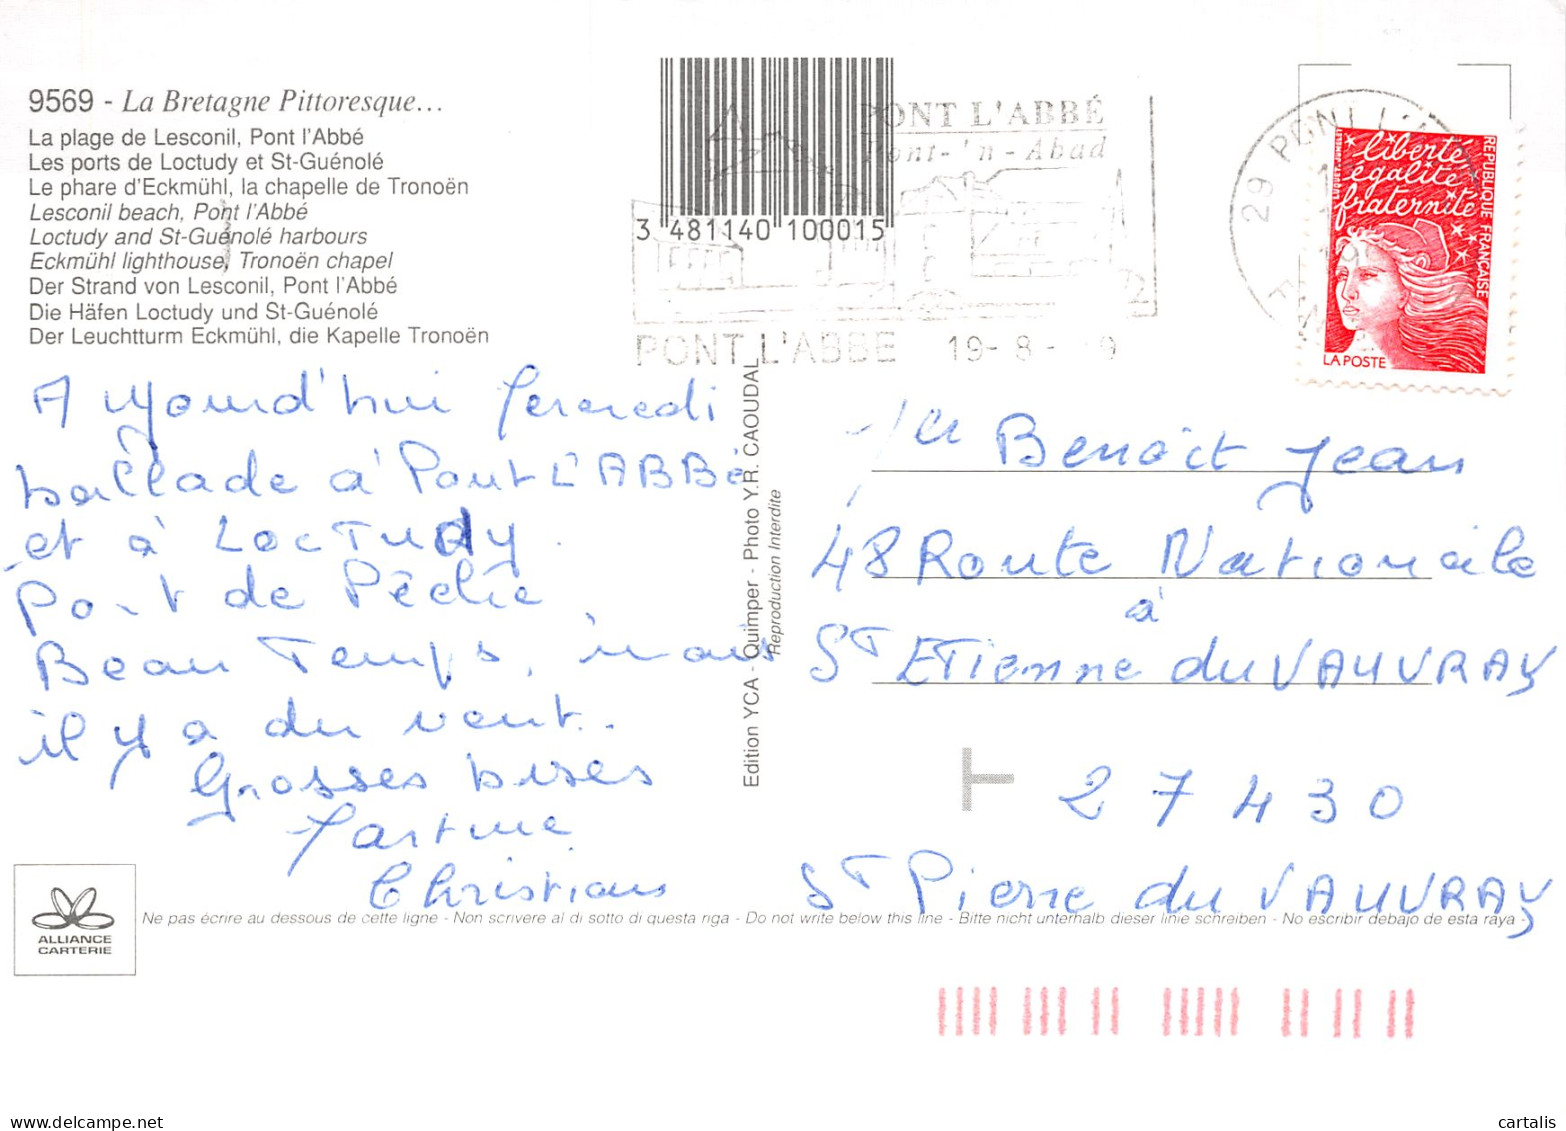 9569 - La Bretagne Pittoresque...
La plage de Lesconil, Pont l'Abbé
Les ports de Loctudy et St-Guénolé
Le phare d'Eckmühl, la chapelle de Tronoën
Lesconil beach, Pont l'Abbé
Loctudy and St-Guénolé harbours
Eckmühl lighthouse, Tronoën chapel
Der Strand von Lesconil, Pont l'Abbé
Die Häfen Loctudy und St-Guénolé
Der Leuchtturm Eckmühl, die Kapelle Tronoën
3 481140 100015
PONT L'ABBÉ
Pont-'n-Abad
PONT L'ABBE 19-8- 9
29 PONT L'
liberté
égalité
fraternité
REPUBLIQUE FRANÇAISE
LA POSTE
Aujourd'hui
ballade à Pont L'ABBé
et à LOCTUDY.
Port de Pêche
Beau Temps, mais
il y a du vent.
Grosses bises
Martine
Christian
Edition YCA - Quimper - Photo Y.R. CAOUDAL
Reproduction Interdite
Benoît Jean
48 Route Nationale
à
ST ETienne du VAUVRAY
27430
ST Pierre du VAUVRAY
ALLIANCE
CARTERIE
Ne pas écrire au dessous de cette ligne - Non scrivere al di sotto di questa riga - Do not write below this line - Bitte nicht unterhalb dieser linie schreiben - No escribir debajo de esta raya -
www.delcampe.net
cartalis